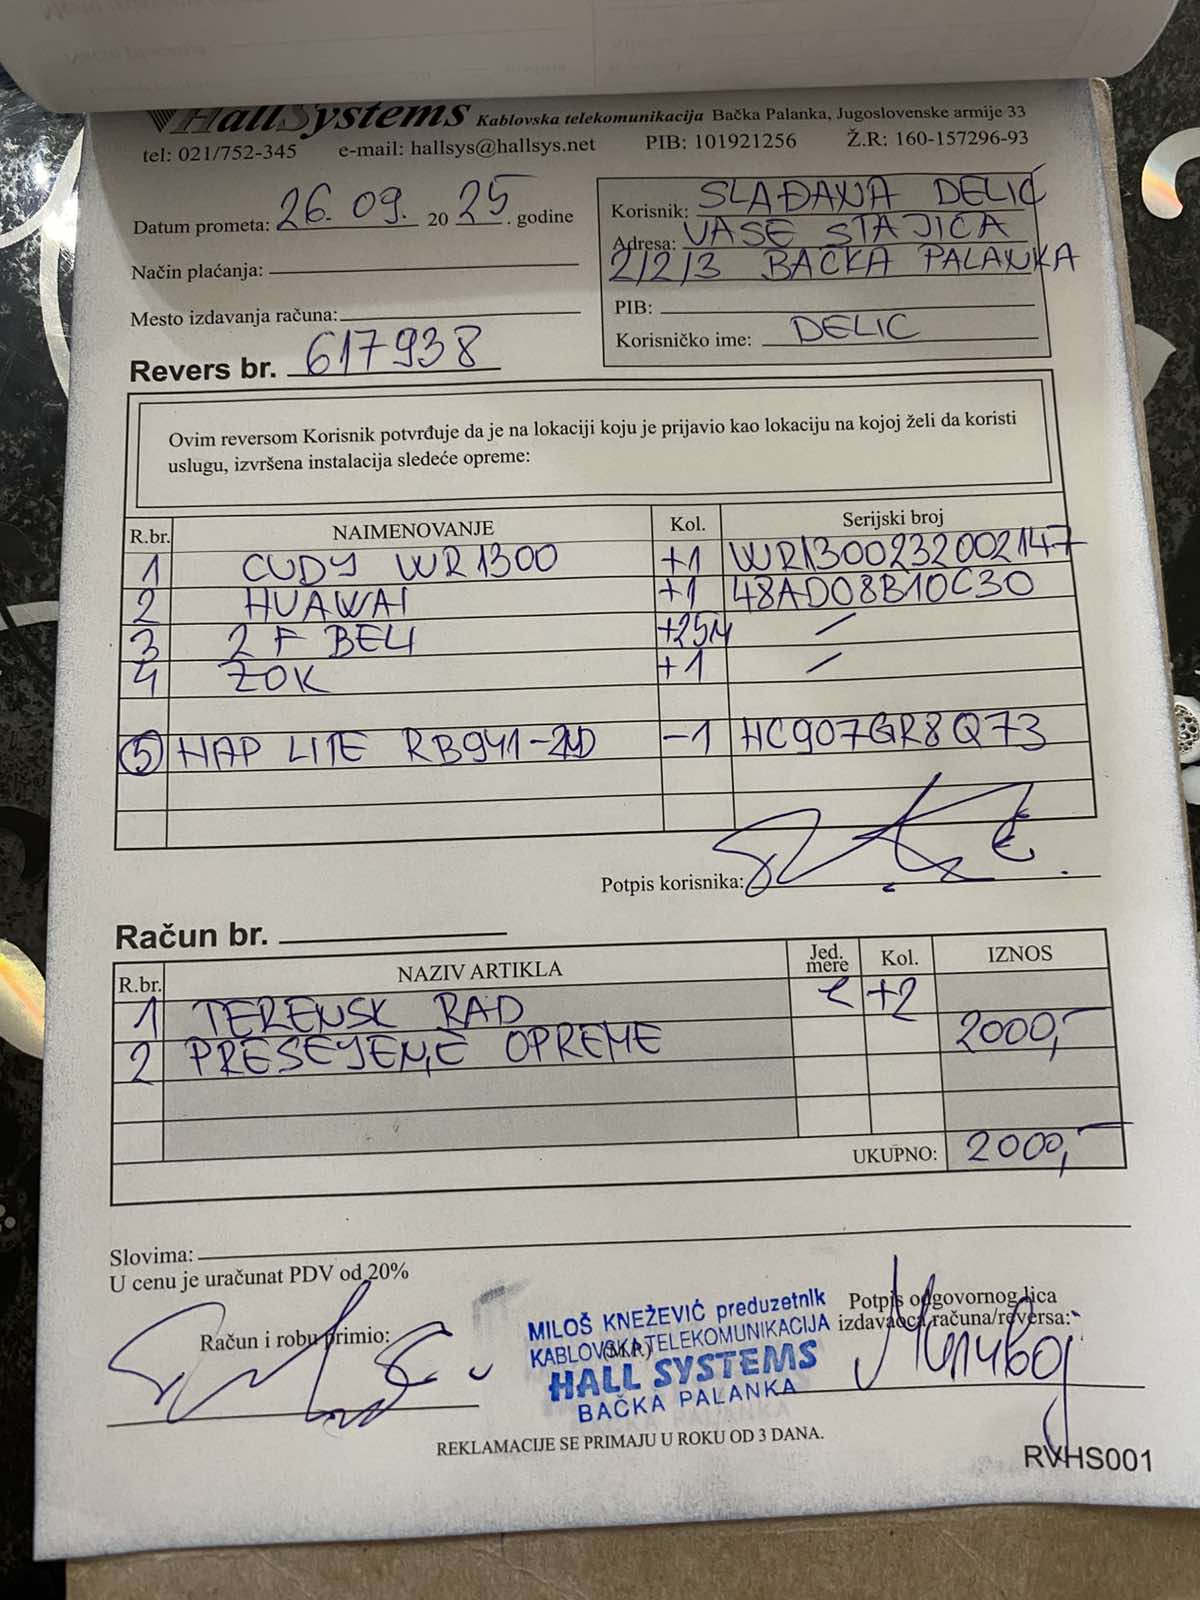 HallSystems Kablovska telekomunikacija Bačka Palanka, Jugoslovenske armije 33
tel: 021/752-345 e-mail: hallsys@hallsys.net PIB: 101921256 Ž.R: 160-157296-93
Datum prometa: 26. 09. 2025. godine
Način plaćanja:
Mesto izdavanja računa:
Revers br. 617938
Korisnik: SLAĐANA DELIĆ
Adresa: VASE STAJIĆA
2/2/3 BAČKA PALANKA
PIB:
Korisničko ime: DELIC
Ovim reversom Korisnik potvrđuje da je na lokaciji koju je prijavio kao lokaciju na kojoj želi da koristi
uslugu, izvršena instalacija sledeće opreme:
R.br. NAIMENOVANJE Kol. Serijski broj
1 CUDY WR1300 +1 WR1300232002147
2 HUAWAI +1 48AD08B10C30
3 2 F BELI +25M /
4 ZOK +1 /
5 HAP LITE RB941-2ND -1 HC907GR8Q73
Potpis korisnika:
Račun br.
R.br. NAZIV ARTIKLA Jed. mere Kol. IZNOS
1 TERENSK RAD +2
2 PRESEJEME OPREME 2000,-
UKUPNO: 2000,-
Slovima:
U cenu je uračunat PDV od 20%
Račun i robu primio:
(M.P.)
MILOŠ KNEŽEVIĆ preduzetnik
KABLOVSKA TELEKOMUNIKACIJA
HALL SYSTEMS
BAČKA PALANKA
Potpis odgovornog lica
izdavaoca računa/reversa:
REKLAMACIJE SE PRIMAJU U ROKU OD 3 DANA.
RVHS001